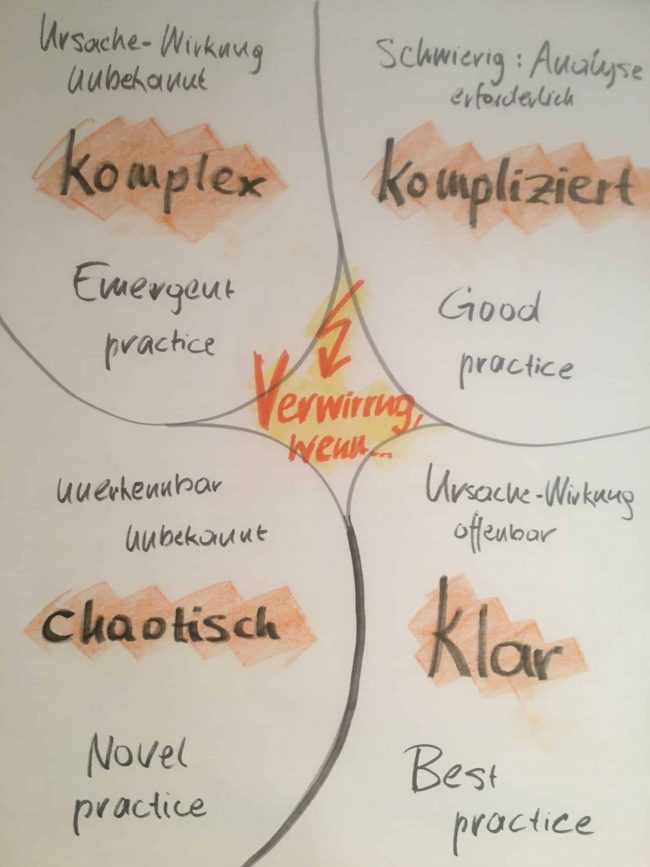 Ursache-Wirkung
Unbekannt
Komplex
Emergent
practice
Schwierig: Analyse
erforderlich
Kompliziert
Good
practice
Verwirrug,
wenn...
unerkennbar
Unbekannt
Chaotisch
Novel
practice
Ursache-Wirkung
offenbar
Klar
Best
practice